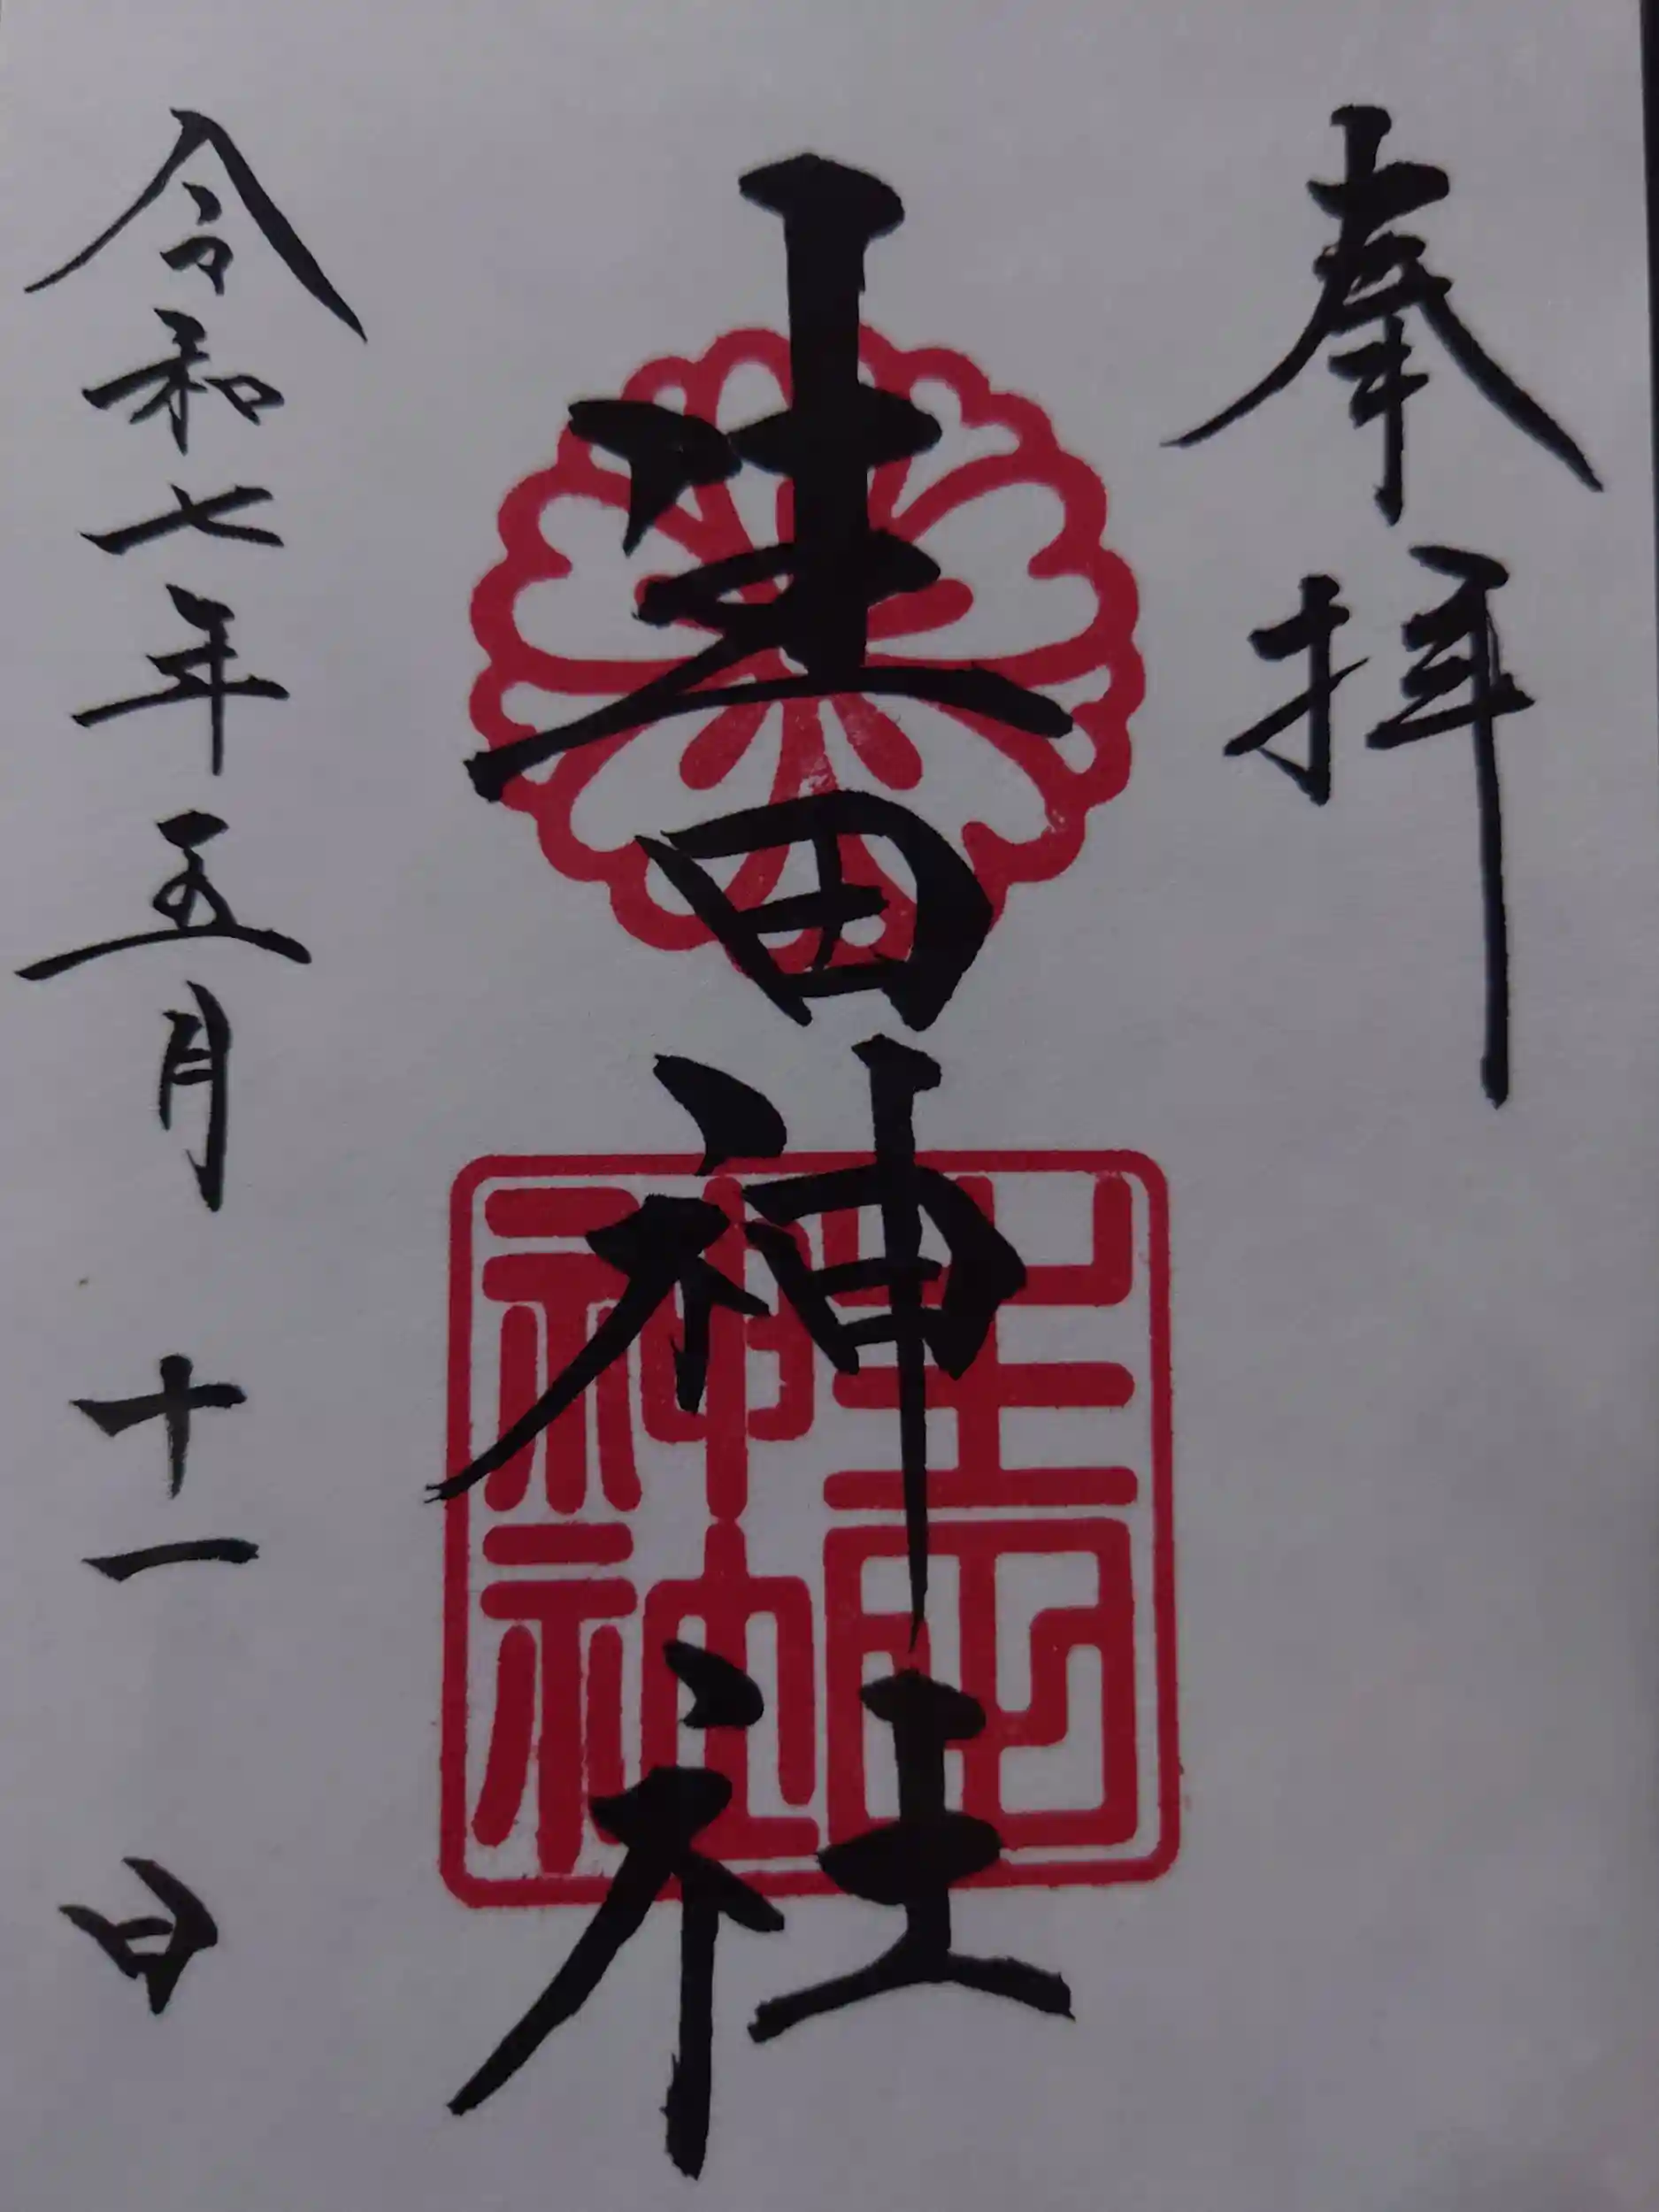 奉拝
生田神社
令和七年五月十一日
生田神社